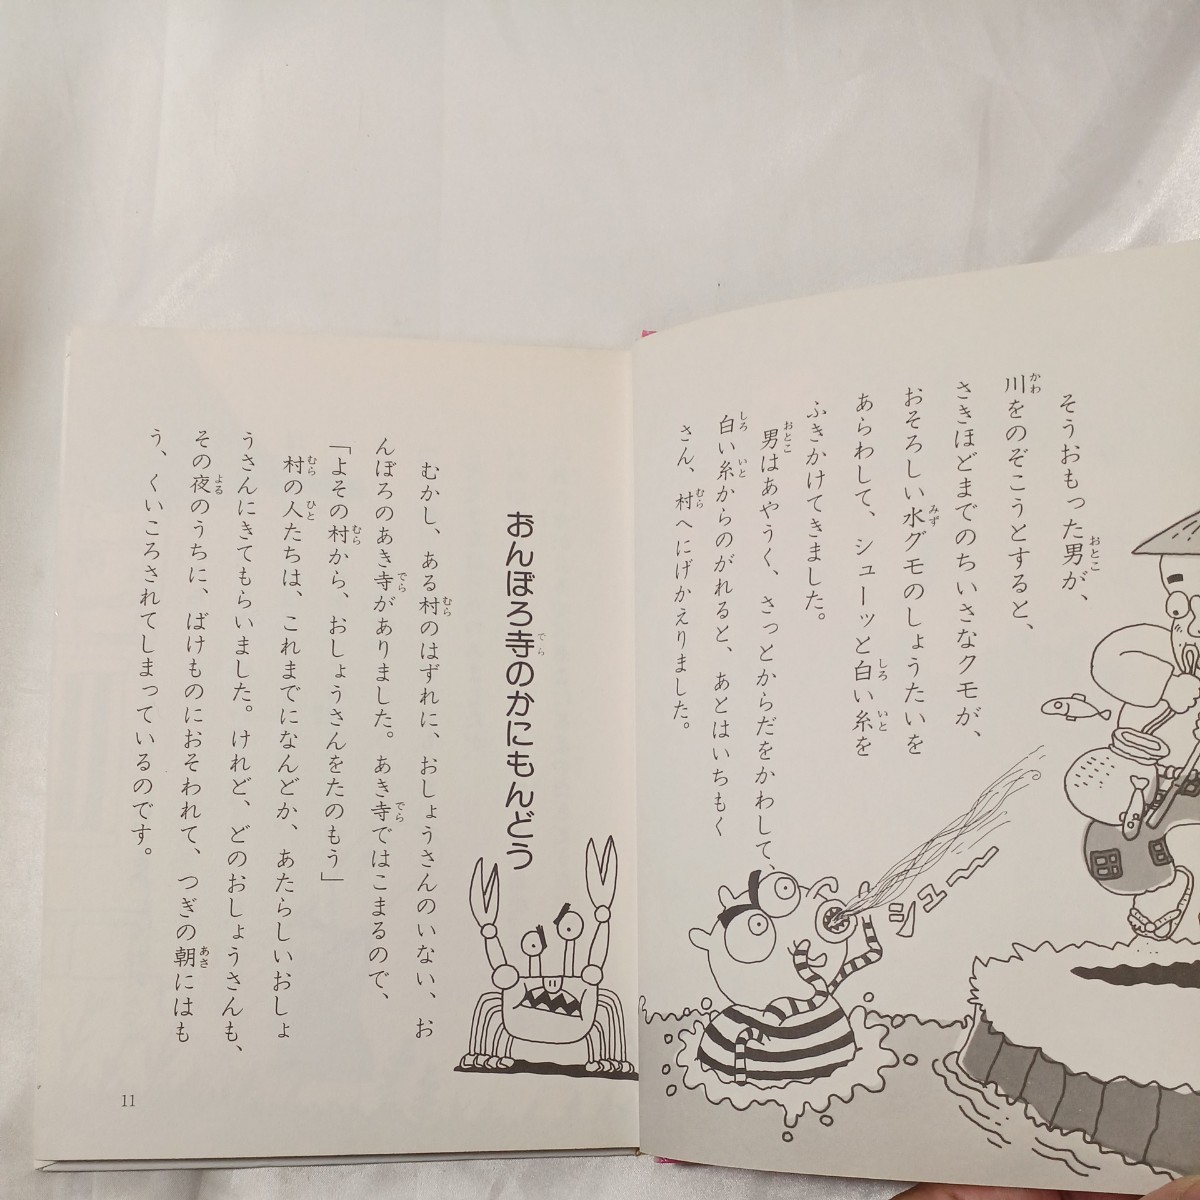 そうおもった男が、
川をのぞこうとすると、
さきほどまでのちいさなクモが、
おそろしい水グモのしょうたいを
あらわして、シューッと白い糸を
ふきかけてきました。
男はあやうく、さっとからだをかわして、
白い糸からのがれると、あとはいちもく
さん、村へにげかえりました。
シュー
おんぼろ寺のかにもんどう
むかし、ある村のはずれに、おしょうさんのいない、お
んぼろのあき寺がありました。あき寺ではこまるので、
「よその村から、おしょうさんをたのもう」
村の人たちは、これまでになんどか、あたらしいおしょ
うさんにきてもらいました。けれど、どのおしょうさんも、
その夜のうちに、ばけものにおそわれて、つぎの朝にはも
う、くいころされてしまっているのです。
11